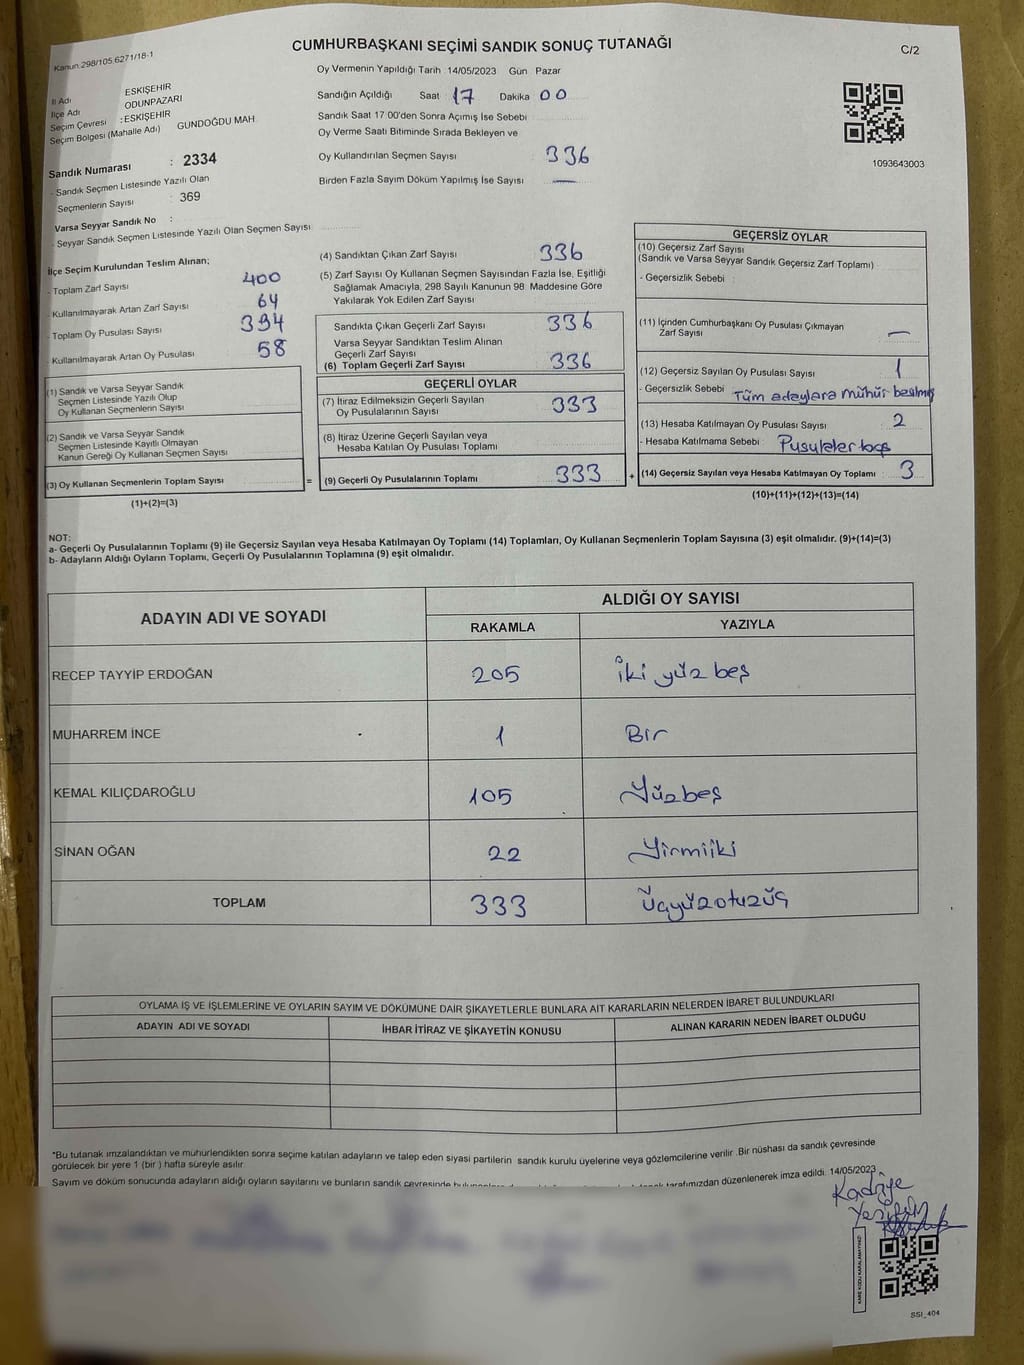 Kanun.298/105.6271/18-1
CUMHURBAŞKANI SEÇİMİ SANDIK SONUÇ TUTANAĞI
C/2
İl Adı ESKİŞEHİR
İlçe Adı ODUNPAZARI
Seçim Çevresi : ESKİŞEHİR
Seçim Bölgesi (Mahalle Adı) GÜNDOĞDU MAH.
Sandık Numarası : 2334
- Sandık Seçmen Listesinde Yazılı Olan
Seçmenlerin Sayısı : 369
Varsa Seyyar Sandık No :
- Seyyar Sandık Seçmen Listesinde Yazılı Olan Seçmen Sayısı
Oy Vermenin Yapıldığı Tarih :14/05/2023 Gün Pazar
Sandığın Açıldığı Saat 17 Dakika 00
Sandık Saat 17:00'den Sonra Açımış İse Sebebi
Oy Verme Saati Bitiminde Sırada Bekleyen ve
Oy Kullandırılan Seçmen Sayısı 336
Birden Fazla Sayım Döküm Yapılmış İse Sayısı —
1093643003
İlçe Seçim Kurulundan Teslim Alınan;
- Toplam Zarf Sayısı 400
- Kullanılmayarak Artan Zarf Sayısı 64
- Toplam Oy Pusulası Sayısı 394
- Kullanılmayarak Artan Oy Pusulası 58
(1) Sandık ve Varsa Seyyar Sandık
Seçmen Listesinde Yazılı Olup
Oy Kullanan Seçmenlerin Sayısı
(2) Sandık ve Varsa Seyyar Sandık
Seçmen Listesinde Kayıtlı Olmayan
Kanun Gereği Oy Kullanan Seçmen Sayısı
(3) Oy Kullanan Seçmenlerin Toplam Sayısı =
(1)+(2)=(3)
(4) Sandıktan Çıkan Zarf Sayısı 336
(5) Zarf Sayısı Oy Kullanan Seçmen Sayısından Fazla İse, Eşitliği
Sağlamak Amacıyla, 298 Sayılı Kanunun 98. Maddesine Göre
Yakılarak Yok Edilen Zarf Sayısı
Sandıkta Çıkan Geçerli Zarf Sayısı 336
Varsa Seyyar Sandıktan Teslim Alınan
Geçerli Zarf Sayısı
(6) Toplam Geçerli Zarf Sayısı 336
GEÇERLİ OYLAR
(7) İtiraz Edilmeksizin Geçerli Sayılan
Oy Pusulalarının Sayısı 333
(8) İtiraz Üzerine Geçerli Sayılan veya
Hesaba Katılan Oy Pusulası Toplamı
(9) Geçerli Oy Pusulalarının Toplamı 333 +
GEÇERSİZ OYLAR
(10) Geçersiz Zarf Sayısı
(Sandık ve Varsa Seyyar Sandık Geçersiz Zarf Toplamı)
- Geçersizlik Sebebi :
(11) İçinden Cumhurbaşkanı Oy Pusulası Çıkmayan
Zarf Sayısı —
(12) Geçersiz Sayılan Oy Pusulası Sayısı 1
- Geçersizlik Sebebi : Tüm adaylara mühür basılmış
(13) Hesaba Katılmayan Oy Pusulası Sayısı 2
- Hesaba Katılmama Sebebi : Pusulalar boş
(14) Geçersiz Sayılan veya Hesaba Katılmayan Oy Toplamı 3
(10)+(11)+(12)+(13)=(14)
NOT:
a- Geçerli Oy Pusulalarının Toplamı (9) ile Geçersiz Sayılan veya Hesaba Katılmayan Oy Toplamı (14) Toplamları, Oy Kullanan Seçmenlerin Toplam Sayısına (3) eşit olmalıdır. (9)+(14)=(3)
b- Adayların Aldığı Oyların Toplamı, Geçerli Oy Pusulalarının Toplamına (9) eşit olmalıdır.
ADAYIN ADI VE SOYADI
ALDIĞI OY SAYISI
RAKAMLA YAZIYLA
RECEP TAYYİP ERDOĞAN 205 İki yüz beş
MUHARREM İNCE 1 Bir
KEMAL KILIÇDAROĞLU 105 Yüzbeş
SİNAN OĞAN 22 Yirmiiki
TOPLAM 333 Üçyüzotuzüç
OYLAMA İŞ VE İŞLEMLERİNE VE OYLARIN SAYIM VE DÖKÜMÜNE DAİR ŞİKAYETLERLE BUNLARA AİT KARARLARIN NELERDEN İBARET BULUNDUKLARI
ADAYIN ADI VE SOYADI İHBAR İTİRAZ VE ŞİKAYETİN KONUSU ALINAN KARARIN NEDEN İBARET OLDUĞU
*Bu tutanak imzalandıktan ve mühürlendikten sonra seçime katılan adayların ve talep eden siyasi partilerin sandık kurulu üyelerine veya gözlemcilerine verilir. Bir nüshası da sandık çevresinde
görülecek bir yere 1 (bir) hafta süreyle asılır.
Sayım ve döküm sonucunda adayların aldığı oyların sayılarını ve bunların sandık çevresinde tarafımızdan düzenlenerek imza edildi. 14/05/2023
Kadriye
KARE KODU KARALAMAYINIZ!
SSI_404